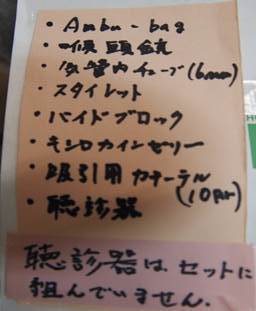 ・Ambu-bag
・喉頭鏡
・気管内チューブ(6mm)
・スタイレット
・バイトブロック
・キシロカインゼリー
・吸引用カテーテル
(10Fr)
・聴診器
聴診器は、セットに
組んでいません.